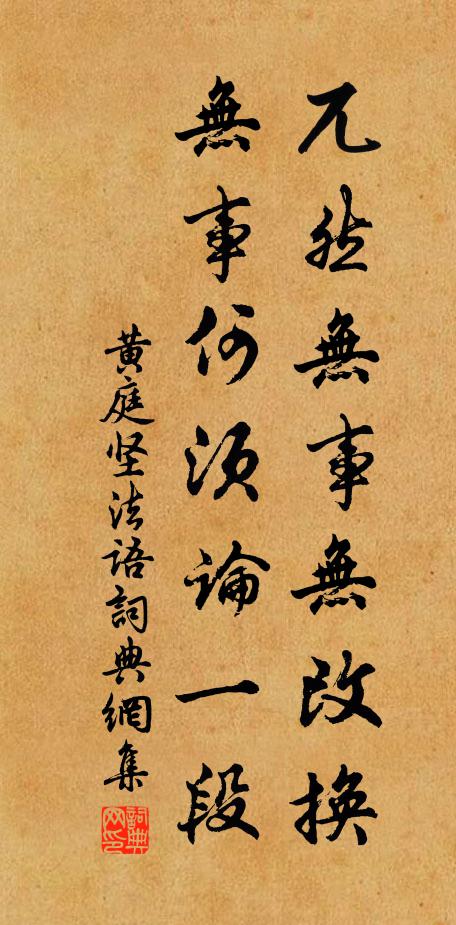 兀然無事無改換
無事何須論一段
黄庭坚法语詞典網集
詞典网印